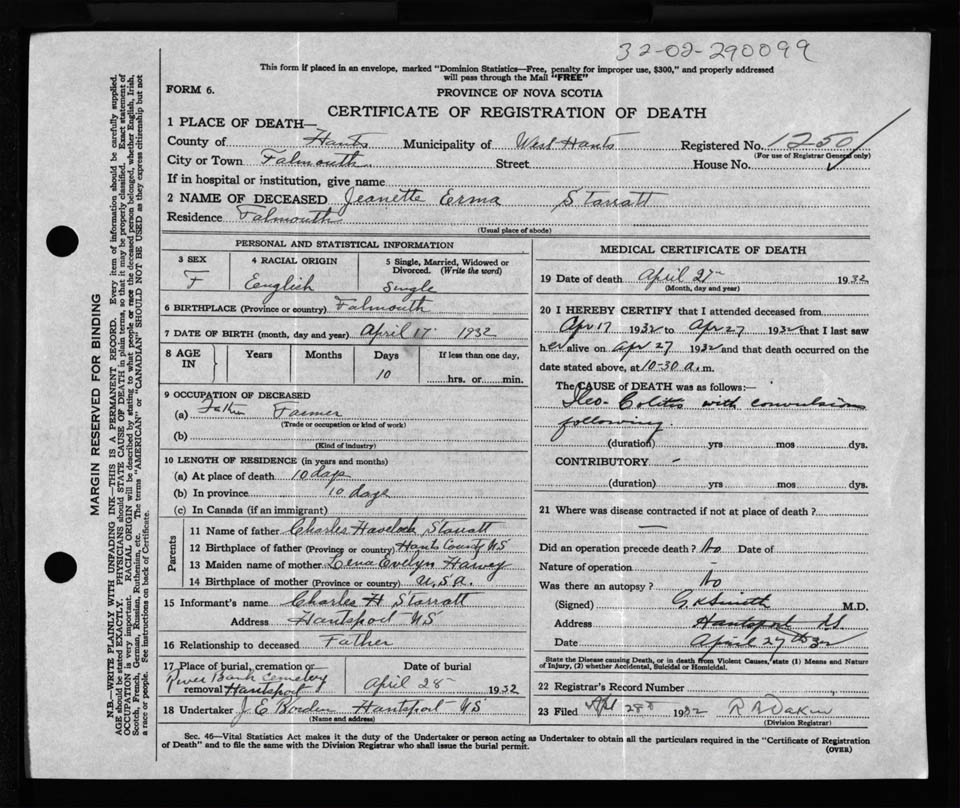 32-02-290099
This form if placed in an envelope, marked "Dominion Statistics—Free, penalty for improper use, $300," and properly addressed
will pass through the Mail "FREE"
FORM 6.
PROVINCE OF NOVA SCOTIA
CERTIFICATE OF REGISTRATION OF DEATH
1 PLACE OF DEATH—
County of Hants Municipality of West Hants Registered No. 1250
(For use of Registrar General only)
City or Town Falmouth Street House No.
If in hospital or institution, give name
2 NAME OF DECEASED Jeanette Erma Starratt
Residence Falmouth
(Usual place of abode)
PERSONAL AND STATISTICAL INFORMATION
3 SEX
F
4 RACIAL ORIGIN
English
5 Single, Married, Widowed or
Divorced. (Write the word)
Single
6 BIRTHPLACE (Province or country) Falmouth
7 DATE OF BIRTH (month, day and year) April 17 1932
8 AGE
IN
Years
Months
Days
10
If less than one day,
hrs. or min.
9 OCCUPATION OF DECEASED
(a) Father Farmer
(Trade or occupation or kind of work)
(b)
(Kind of industry)
10 LENGTH OF RESIDENCE (in years and months)
(a) At place of death 10 days
(b) In province 10 days
(c) In Canada (if an immigrant)
Parents
11 Name of father Charles Havelock Starratt
12 Birthplace of father (Province or country) Hants County NS
13 Maiden name of mother Lena Evelyn Harvey
14 Birthplace of mother (Province or country) U.S.A.
15 Informant's name Charles H Starratt
Address Hantsport NS
16 Relationship to deceased Father
17 Place of burial, cremation or
River Bank Cemetery
removal Hantsport
Date of burial
April 28 1932
18 Undertaker J E Borden Hantsport NS
(Name and address)
MEDICAL CERTIFICATE OF DEATH
19 Date of death April 27th 1932
(Month, day and year)
20 I HEREBY CERTIFY that I attended deceased from
Apr 17 1932 to Apr 27 1932 that I last saw
her alive on Apr 27 1932 and that death occurred on the
date stated above, at 10-30 a.m.
The CAUSE OF DEATH was as follows:—
Ileo-Colitis with convulsions
following.
(duration) yrs mos dys.
CONTRIBUTORY -
(duration) yrs. mos. dys.
21 Where was disease contracted if not at place of death?
—
Did an operation precede death? No Date of
Nature of operation -
Was there an autopsy? No
(Signed) G K Smith M.D.
Address Hantsport NS
Date April 27th 32
State the Disease causing Death, or in death from Violent Causes, state (1) Means and Nature
of Injury, (2) whether Accidental, Suicidal or Homicidal.
22 Registrar's Record Number
23 Filed Apl 28th 1932 R A Dakin
(Division Registrar)
Sec. 46—Vital Statistics Act makes it the duty of the Undertaker or person acting as Undertaker to obtain all the particulars required in the "Certificate of Registration
of Death" and to file the same with the Division Registrar who shall issue the burial permit.
(OVER)
MARGIN RESERVED FOR BINDING
N.B.—WRITE PLAINLY WITH UNFADING INK—THIS IS A PERMANENT RECORD. Every item of information should be carefully supplied.
AGE should be stated EXACTLY. PHYSICIANS should STATE CAUSE OF DEATH in plain terms, so that it may be properly classified. Exact statement of
OCCUPATION is very important. RACIAL ORIGIN will be described by stating to what people or race the deceased person belonged, whether English, Irish,
Scotch, French, German, Russian, Ruthenian, etc. The terms "AMERICAN" or "CANADIAN" SHOULD NOT BE USED as they express citizenship but not
a race or people. See instructions on back of Certificate.